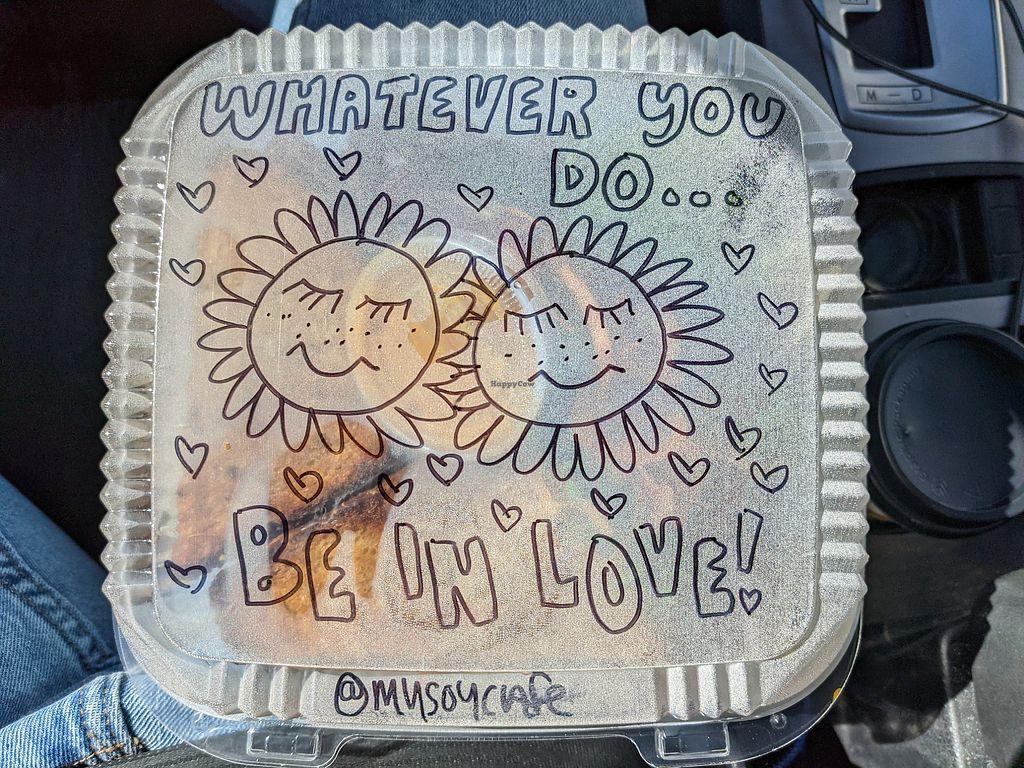 WHATEVER YOU
DO...
HappyCow
BE IN LOVE!
@MYSOYCAFE
M - D